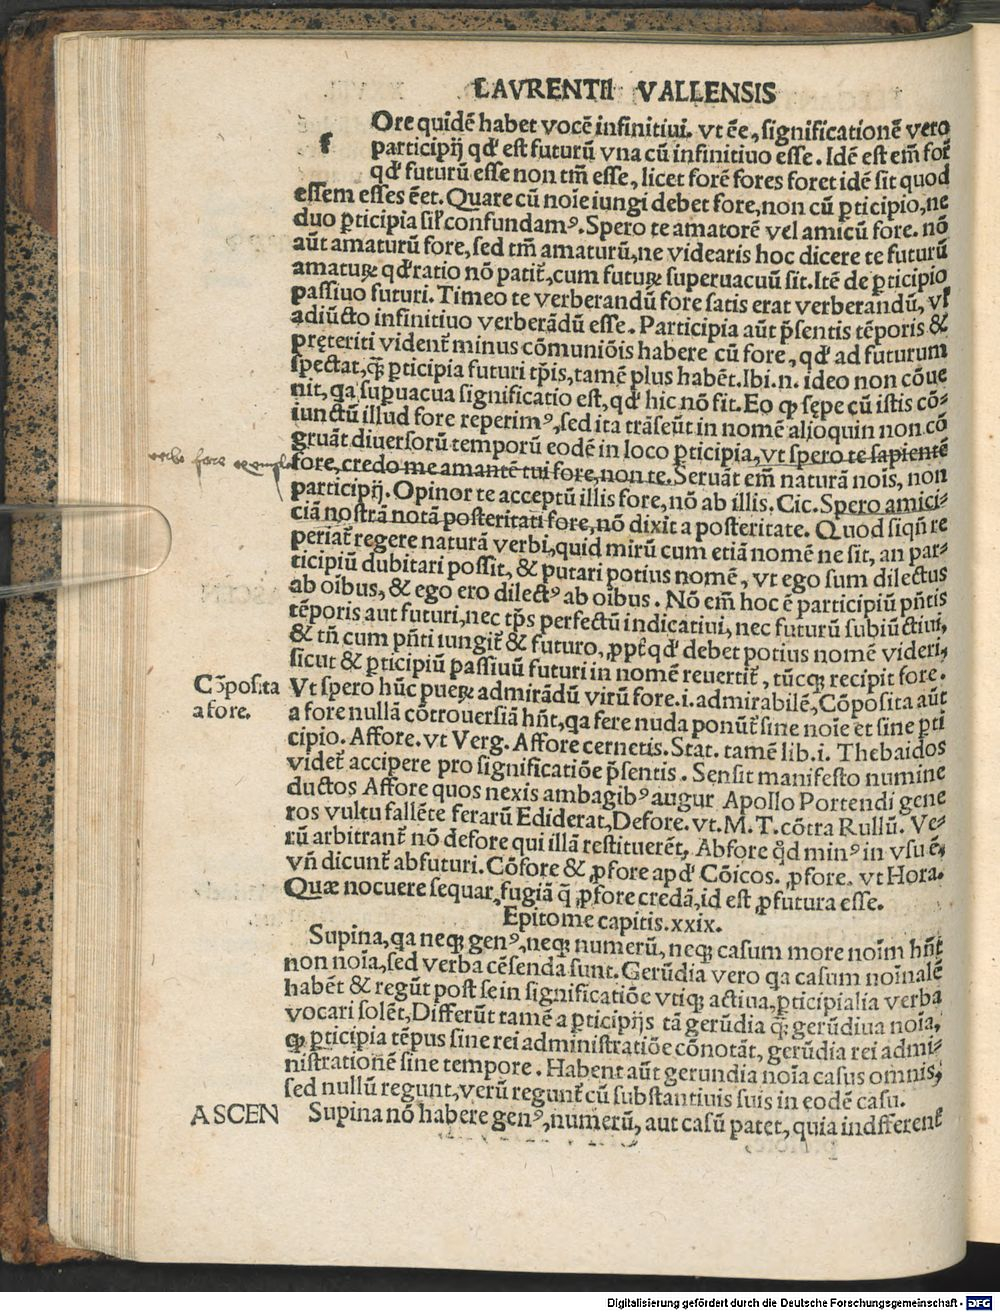 LAVRENTII VALLENSIS
f Ore quidẽ habet vocẽ infinitiui. vt ẽe, significationẽ vero
participij qď est futurũ vna cũ infinitiuo esse. Idẽ est em̃ for̃
qď futurũ esse non tm̃ esse, licet forẽ fores foret idẽ sit quod
essem esses ẽet. Quare cũ noĩe iungi debet fore, non cũ ꝑticipio, ne
duo ꝑticipia sil̃ confundamꝰ. Spero te amatorẽ vel amicũ fore. nõ
aũt amaturũ fore, sed tm̃ amaturũ, ne videaris hoc dicere te futurũ
amatuꝝ qď ratio nõ patit̃, cum futuꝝ superuacuũ sit. Itẽ de ꝑticipio
passiuo futuri. Timeo te verberandũ fore satis erat verberandũ, vl̃
adiũcto infinitiuo verberãdũ esse. Participia aũt p̃sentis tẽporis &
pręteriti vident̃ minus cõmuniõis habere cũ fore, qď ad futurum
spectat, q̃ꝫ ꝑticipia futuri tp̃is, tamẽ plus habẽt. Ibi.n. ideo non cõue
nit, qa suꝑuacua significatio est, qď hic nõ fit. Eo ꝙ sępe cũ istis cõ-
iunctũ illud fore reperimꝰ, sed ita trãseũt in nomẽ alioquin non cõ
gruãt diuersorũ temporũ eodẽ in loco ꝑticipia, vt spero te sapientẽ
fore, credo me amantẽ tui fore, non te. Seruãt em̃ naturã nois, non
participij. Opinor te acceptũ illis fore, nõ ab illis. Cic. Spero amici-
ciã nostrã notã posteritati fore, nõ dixit a posteritate. Quod siqñ re
periat̃ regere naturã verbi, quid mirũ cum etiã nomẽ ne sit, an par-
ticipiũ dubitari possit, & putari potius nomẽ, vt ego sum dilectus
ab oĩbus, & ego ero dilectꝰ ab oĩbus. Nõ em̃ hoc ẽ participiũ pñtis
tẽporis aut futuri, nec tp̃s perfectũ indicatiui, nec futurũ subiũctiui,
& tñ cum pñti iungit̃ & futuro, ꝓpt̃ qď debet potius nomẽ videri,
sicut & ꝑticipiũ passiuũ futuri in nomẽ reuertit̃, tũcqꝫ recipit fore.
Cõposita a fore.
Vt spero hũc pueꝝ admirãdũ virũ fore.i.admirabilẽ, Cõposita aũt
a fore nullã cõtrouersiã hñt, qa fere nuda ponũt̃ sine noĩe et sine ꝑti
cipio. Affore. vt Verg. Affore cernetis. Stat. tamẽ lib.i. Thebaidos
videt̃ accipere pro significatiõe p̃sentis. Sensit manifesto numine
ductos Affore quos nexis ambagibꝰ augur Apollo Portendi gene
ros vultu fallẽte ferarũ Ediderat, Defore. vt. M. T. cõtra Rullũ. Ve-
rũ arbitrant̃ nõ defore qui illã restituerẽt, Abfore q̊d minꝰ in vsu ẽ,
vñ dicunt̃ abfuturi. Cõfore & ꝓfore apď Cõicos. ꝓfore. vt Hora.
Quæ nocuere sequar, fugiã q̃ ꝓfore credã, id est ꝓfutura esse.
Epitome capitis.xxix.
Supina, qa neqꝫ genꝰ, neqꝫ numerũ, neqꝫ casum more noĩm hñt
non noĩa, sed verba cẽsenda sunt. Gerũdia vero qa casum noĩnalẽ
habẽt & regũt post se in significatiõe vtiqꝫ actiua, ꝑticipialia verba
vocari solẽt, Differũt tamẽ a ꝑticipijs tã gerũdia q̃ꝫ gerũdiua noĩa,
ꝙ ꝑticipia tẽpus sine rei administratiõe cõnotãt, gerũdia rei admi-
nistrationẽ sine tempore. Habent aũt gerundia noĩa casus omnis,
sed nullũ regunt, verũ regunt̃ cũ substantiuis suis in eodẽ casu.
ASCEN
Supina nõ habere genꝰ, numerũ, aut casũ patet, quia indfferent̃
Digitalisierung gefördert durch die Deutsche Forschungsgemeinschaft - DFG